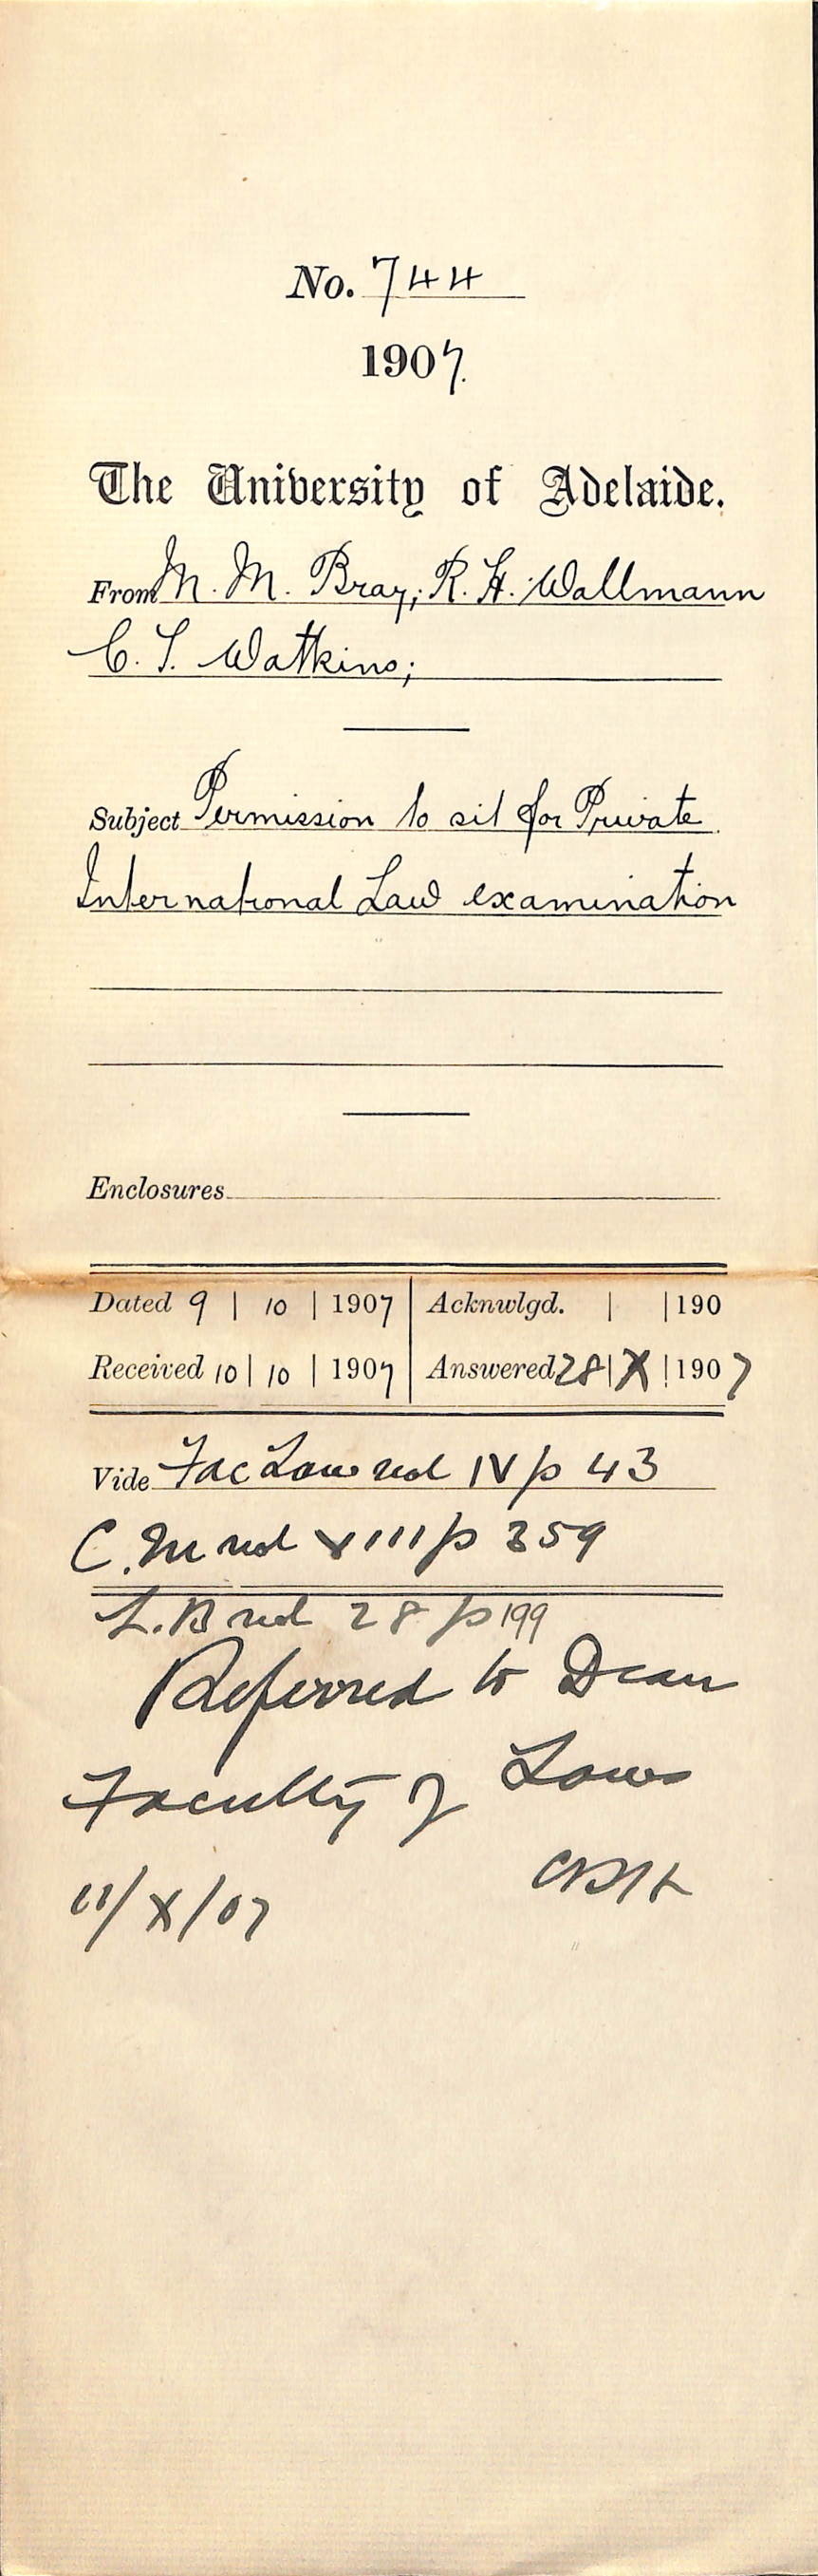 No. 744
1907.
The University of Adelaide.
From M. M. Bray; R. H. Wallmann
C. S. Watkins;
Subject Permission to sit for Private
International Law examination
Enclosures
Dated 9 | 10 | 1907 Acknwlgd. | | 190
Received 10 | 10 | 1907 Answered 28 | X | 1907
Vide Fac Laws vol IV p 43
C.M vol XIII p 359
L.B vol 28 p 199
Referred to Dean
Faculty of Laws
11/X/07